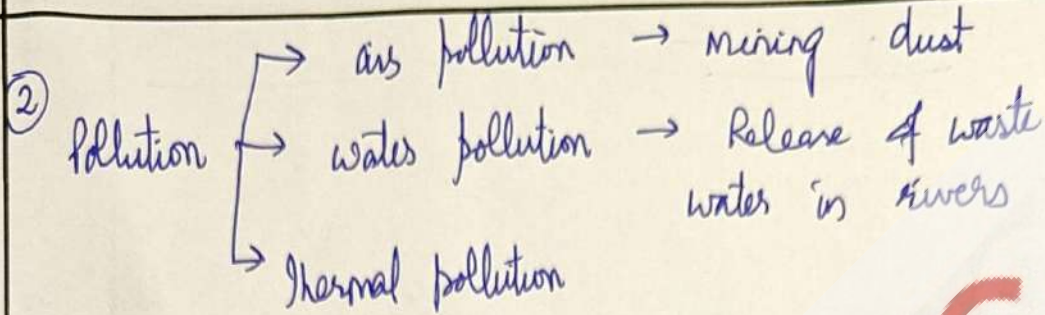 ② Pollution → air pollution → mining dust
→ water pollution → Release of waste
water in rivers
→ Thermal pollution